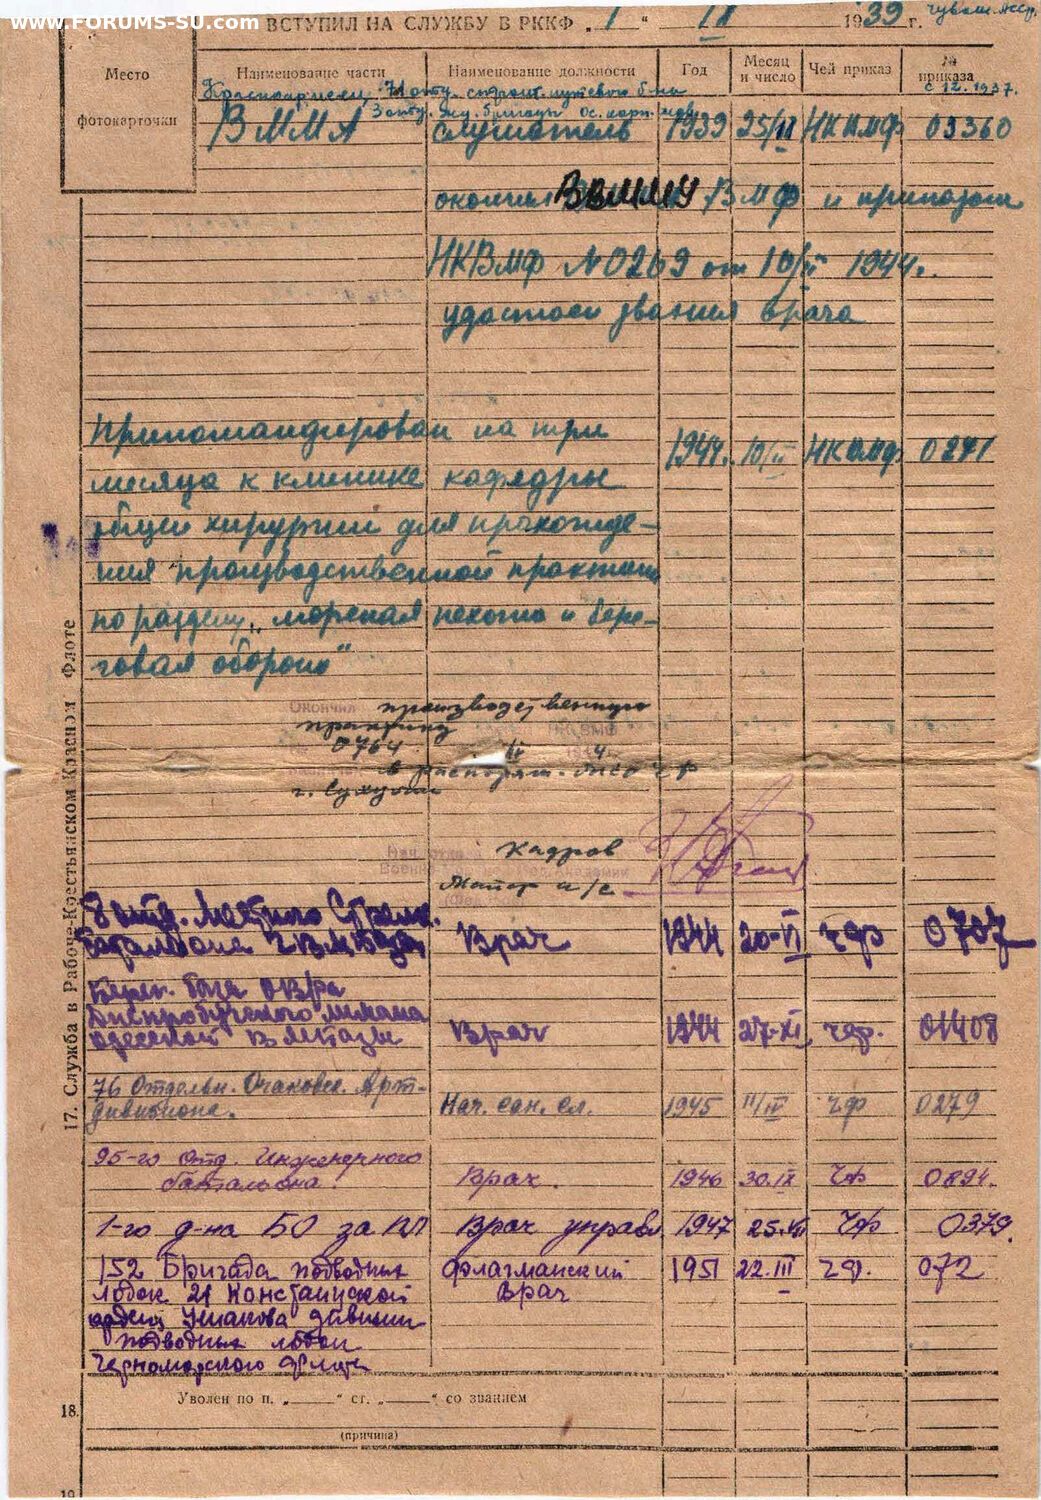 www.FORUMS-SU.com
ВСТУПИЛ НА СЛУЖБУ В РККФ „ 1 “ IX 1939 г.
Место
фотокарточки
Наименование части Наименование должности Год Месяц и число Чей приказ № приказа
с 12. 1937.
ВММА слушатель 1939 25/II НКВМФ 03360
окончил ВВММУ ВМФ и приказом
НКВМФ № 0269 от 10/II 1944г.
удостоен звания врача
Прикомандирован на три 1944. 10/II НКВМФ 0271
месяца к клинике кафедры
общей хирургии для прохожде-
ния производственной практики
по разделу „морская пехота и бере-
говая оборона“
Окончил производственную
практику
0764
в распоряж. ЧФ
г. Сухуми
Нач. отдела кадров
Майор и/с
17. Служба в Рабоче-Крестьянском Красном Флоте
8 отд. Местного Стрелк.
батальона Врач 1944 20-VI ЧФ 0707
Берег. база ОВРа
Днепробугского лимана
Одесской В М базы Врач 1944 27-XI ЧФ. 01408
76 Отдельн. Очаковск. Арт-
дивизиона. Нач. сан. сл. 1945 11/IV ЧФ 0279
95-го отд. Инженерного
батальона. Врач. 1946 30.IX ЧФ 0894.
1-го д-на БО за ВП Врач управл 1947 25.VI ЧФ 0379.
152 Бригада подводных Флагманский 1951 22.III ЧФ. 072
лодок 21 Констанцской врач
ордена Ушакова дивизии
подводных лодок
Черноморского флота
18. Уволен по п. „ “ ст. „ “ со званием
(причина)
19